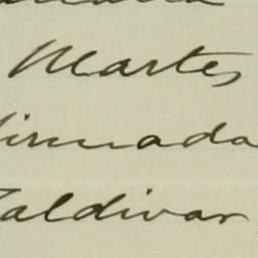 Martes
firmada
Zaldivar